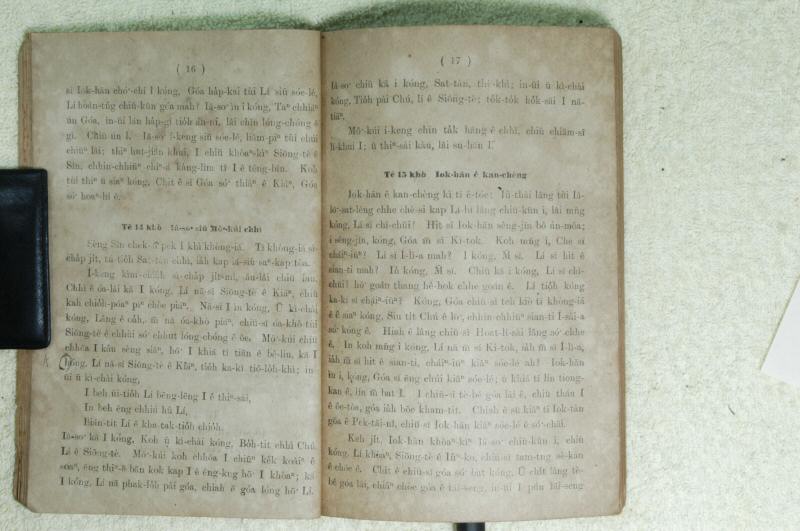 ( 16 )
sī Iok-hān chó·-chí I kóng, Góa hap-kai tùi Lí siū sóe-lé,
Lí hoán-tńg chiū-kūn góa mah? Iâ-so· ìn i kóng, Taⁿ chhiáⁿ
ún Góa, in-ūi lán hap-gî tio̍h án-ni, lâi chīn lóng-chóng ê
gī. Chiū ún I. Iâ-so· í-keng siū sóe-lé, liâm-piⁿ tùi chúi
chiūⁿ lâi; thiⁿ hut-jiân khui, I chiū khòaⁿ-kìⁿ Siōng-tè ê
Sîn, chhin-chhiūⁿ chiⁿ-á kàng-lîm tī I ê téng-bīn. Koh
tùi thiⁿ ū siaⁿ kóng, Chit ê sī Góa só· thiàⁿ ê Kiáⁿ, Góa
só· hoaⁿ-hí ê.
Tē 14 khò Iâ-so· siū Mô·-kúi chhì
Sèng Sîn chek-sî pek I khì khòng-iá. Tī khòng-iá sì-
cha̍p ji̍t, tú-tio̍h Sat-tàn chhì, iah kap iá-siù saⁿ-kap tòa.
I-keng kìm-chia̍h sì-cha̍p ji̍t-mî, āu-lâi chiū iau.
Chhì ê óa-lâi kā I kóng, Lí nā-sī Siōng-tè ê Kiáⁿ, chiū
kah chio̍h-póaⁿ pìⁿ chòe piáⁿ. Nā-sī I ìn kóng, Ū kì-chài
kóng, Lâng ê oa̍h, m̄ nā óa-khò piáⁿ, chiū-sī óa-khò tùi
Siōng-tè ê chhùi só· chhut lóng-chóng ê ōe. Mô·-kúi chiū
chhōa I kàu sèng siâⁿ, hō· I khiā tī tiān ê bé-liu, kā I
kóng, Lí nā-sī Siōng-tè ê Kiáⁿ, tio̍h ka-kī tiô-lo̍h-khì; in-
ūi ū kì-chài kóng,
I beh ūi-tio̍h Lí bēng-lēng I ê thiⁿ-sài,
In beh ēng chhiú hû Lí,
Bián-tit Lí ê kha tak-tio̍h chio̍h.
Iâ-so· kā I kóng, Koh ū kì-chài kóng, Bo̍h-tit chhì Chú,
Lí ê Siōng-tè. Mô·-kúi koh chhōa I chiūⁿ ke̍k koâiⁿ ê
soaⁿ, ēng thiⁿ-ē bān kok kap I ê êng-kng hō· I khòaⁿ; kā
I kóng, Lí nā phak-lo̍h pài góa, chiah ê góa lóng hō· Lí.
( 17 )
Iâ-so· chiū kā i kóng, Sat-tàn, thè-khì; in-ūi ū kì-chài
kóng, Tio̍h pài Chú, lí ê Siōng-tè; to̍k-to̍k ho̍k-sāi I nā-
tiāⁿ.
Mô·-kúi í-keng chīn ta̍k hāng ê chhì, chiū chiām-sî
lī-khui I; ū thiⁿ-sài kàu, lâi su-hān I.
Tē 15 khò Iok-hān ê kan-chèng
Iok-hān ê kan-chèng kì tī ē-tóe: Iû-thài lâng tùi Iâ-
lō·-sat-léng chhe chè-si kap Lī-bī lâng chiū-kūn i, lâi mn̄g
kóng, Lí sī chī-chūi? Hit sî Iok-hān sêng-jīn bô ún-môa;
i sêng-jīn, kóng, Góa m̄ sī Ki-tok. Koh mn̄g i, Che sī
cháiⁿ-iūⁿ? Lí sī Î-lī-a mah? I kóng, M̄ sī. Lí sī hit ê
sian-ti mah? Ìn kóng, M̄ sī. Chiū kā i kóng, Lí sī chī-
chūi? hó· goán thang hê-hok chhe goán ê. Lí tio̍h kóng
ka-kī sī cháiⁿ-iūⁿ? Kóng, Góa chiū-sī teh kiò tī khòng-iá
ê ê siaⁿ kóng, Siu-tit Chú ê lō·, chhin-chhiūⁿ sian-ti Í-sài-a
só· kóng ê. Hiah ê lâng chiū-sī Hoat-lī-sài lâng só· chhe
ê. In koh mn̄g i kóng, Lí nā m̄ sī Ki-tok, iah m̄ sī Î-lī-a,
iah m̄ sī hit ê sian-ti, cháiⁿ-iūⁿ kiâⁿ sóe-lé ah? Iok-hān
ìn i, kóng, Góa sī ēng chúi kiâⁿ sóe-lé; ū khiā tī lín tiong-
kan ê, lín m̄ bat I. I chiū-sī tè-bé góa lâi ê, chiū thaí I
ê ôe-tòa, góa iah bōe kham-tit. Chiah ê sū kiâⁿ tī Iok-tàn
góa ê Pek-tāi-nî, chiū-sī Iok-hān kiâⁿ sóe-lé ê só·-chāi.
Keh ji̍t, Iok-hān khòaⁿ-kìⁿ Iâ-so· chiū-kūn i, chiū
kóng, Lí khòaⁿ, Siōng-tè ê Iûⁿ-ko, chiū-sī tam-tng sè-kan
ê chōe ê. Chit ê chiū-sī góa só· bat kóng, Ū chi̍t lâng tè-
bé góa lâi, chiáⁿ chòe góa ê tāi-seng, in-ūi I pún tāi-seng